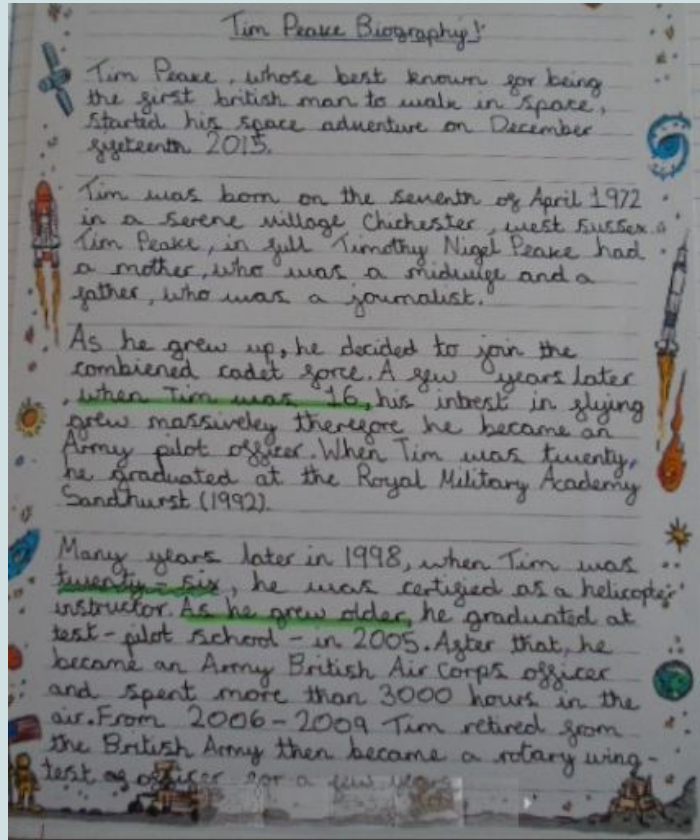 Tim Peake Biography!
Tim Peake, whose best known for being
the first british man to walk in space,
started his space adventure on December
fifteenth 2015.
Tim was born on the seventh of April 1972
in a serene village Chichester, west sussex.
Tim Peake, in full Timothy Nigel Peake had
a mother, who was a midwife and a
father, who was a journalist.
As he grew up, he decided to join the
combiened cadet force. A few years later
, when Tim was 16, his intrest in flying
grew massiveley therefore he became an
Army pilot officer. When Tim was twenty,
he graduated at the Royal Military Academy
Sandhurst (1992).
Many years later in 1998, when Tim was
twenty-six, he was certified as a helicopter
instructor. As he grew older, he graduated at
test-pilot school - in 2005. After that, he
became an Army British Air Corps officer
and spent more than 3000 hours in the
air. From 2006-2009 Tim retired from
the British Army then became a rotary wing-
test officer for a few years